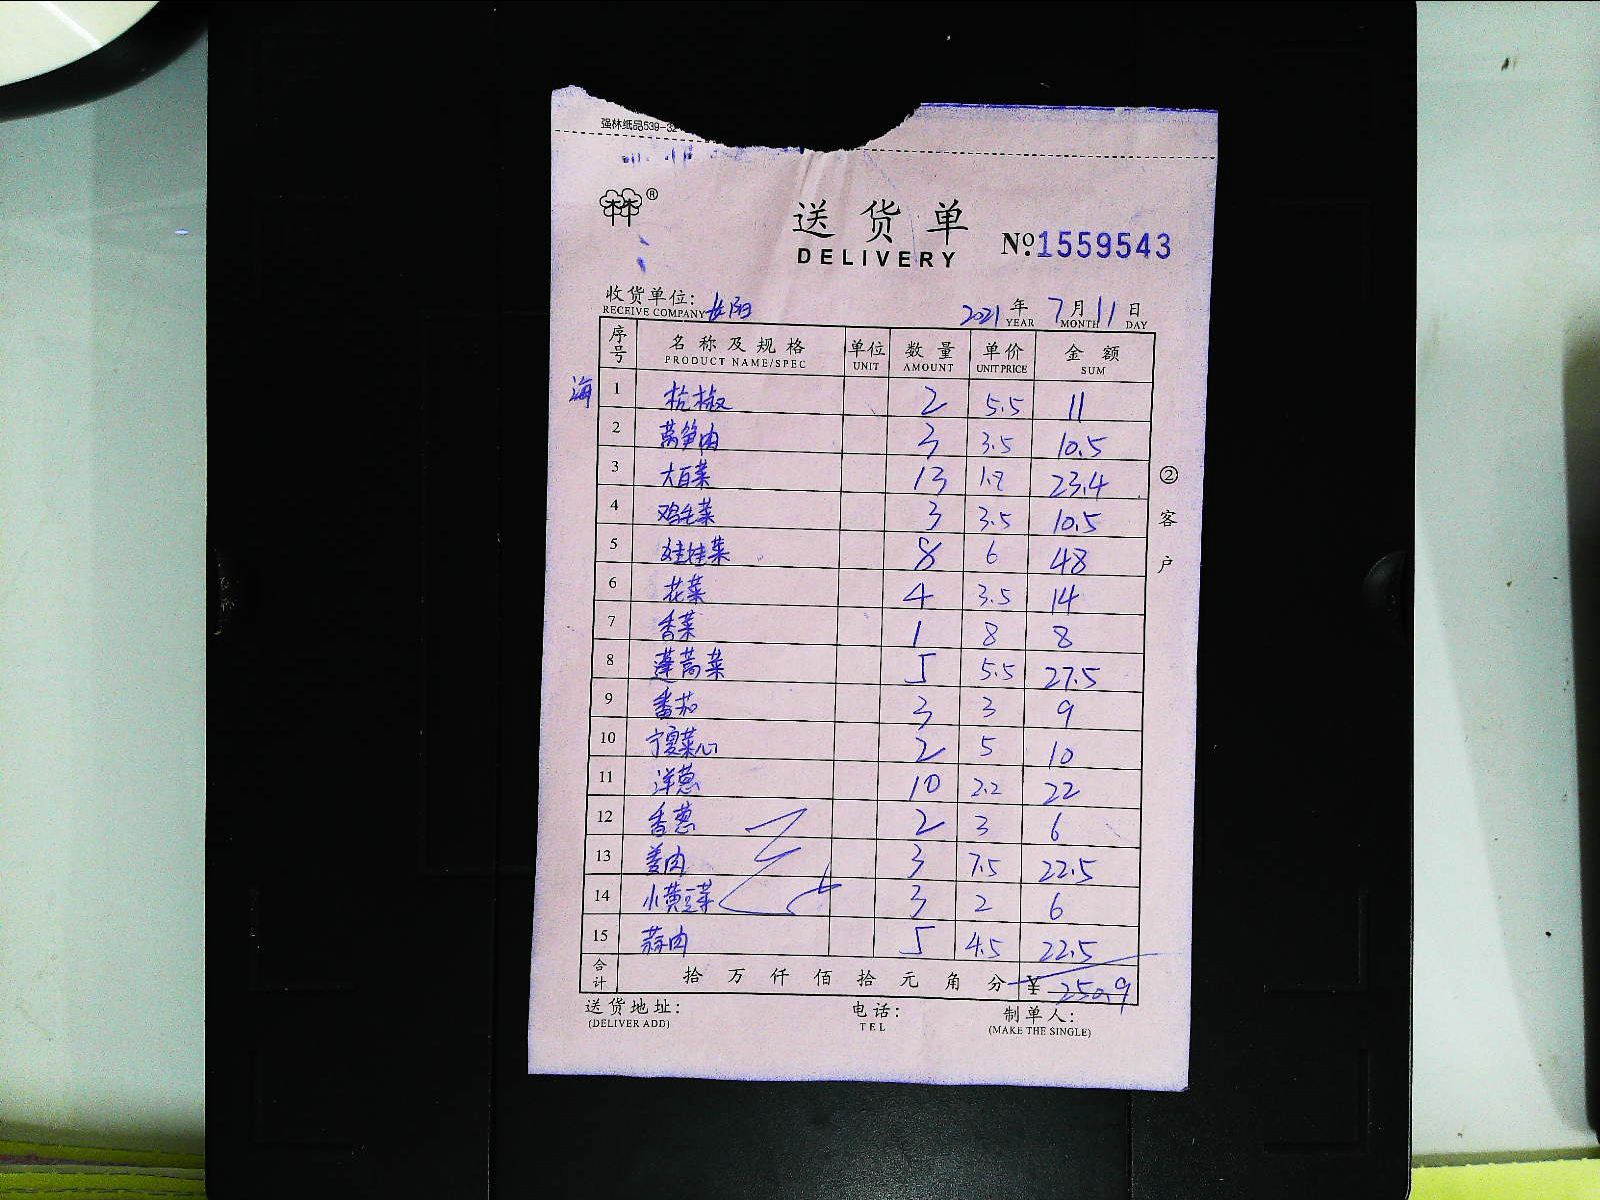 强林纸品539-32
®
送货单
DELIVERY
No.1559543
收货单位: 2021年7月11日
RECEIVE COMPANY YEAR MONTH DAY
序号 名称及规格 单位 数量 单价 金额
PRODUCT NAME/SPEC UNIT AMOUNT UNIT PRICE SUM
海 1 杭椒 2 5.5 11
2 莴笋肉 3 3.5 10.5
3 大白菜 13 1.8 23.4
4 鸡毛菜 3 3.5 10.5
5 娃娃菜 8 6 48
6 花菜 4 3.5 14
7 香菜 1 8 8
8 蓬蒿菜 5 5.5 27.5
9 番茄 3 3 9
10 宁夏菜心 2 5 10
11 洋葱 10 2.2 22
12 香葱 2 3 6
13 姜肉 3 7.5 22.5
14 小黄豆菜 3 2 6
15 蒜肉 5 4.5 22.5
合计 拾万仟佰拾元角分 ¥250.9
②客户
送货地址: 电话: 制单人:
(DELIVER ADD) TEL (MAKE THE SINGLE)